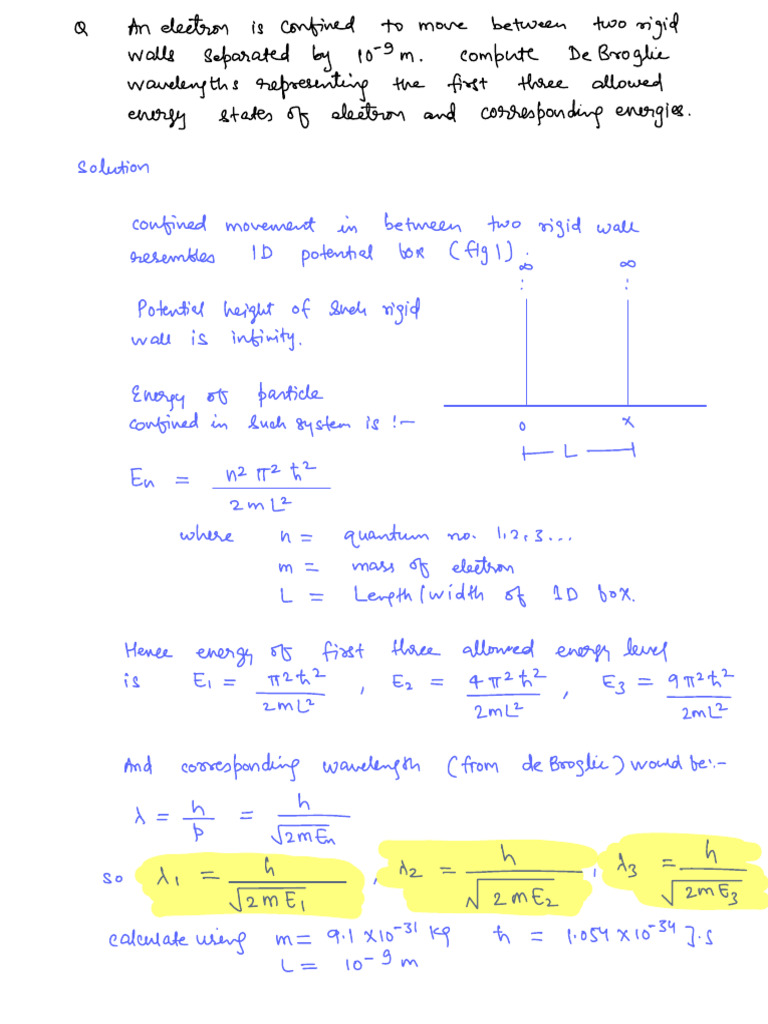 Q An electron is confined to move between two rigid
walls separated by 10⁻⁹ m. compute De Broglie
wavelengths representing the first three allowed
energy states of electron and corresponding energies.
Solution
confined movement in between two rigid wall
resembles 1D potential box (fig 1).
∞ ∞
Potential height of such rigid
wall is infinity.
Energy of particle
confined in such system is :-
0 x
L
En = n² π² ħ² / 2mL²
where n = quantum no. 1,2,3...
m = mass of electron
L = Length/width of 1D box.
Hence energy of first three allowed energy level
is E₁ = π²ħ² / 2mL² , E₂ = 4π²ħ² / 2mL² , E₃ = 9π²ħ² / 2mL²
And corresponding wavelength (from de Broglie) would be:-
λ = h/p = h / √2mEn
so λ₁ = h / √2mE₁ , λ₂ = h / √2mE₂ , λ₃ = h / √2mE₃
calculate using m = 9.1 x10⁻³¹ kg ħ = 1.054 x 10⁻³⁴ J.s
L = 10⁻⁹ m